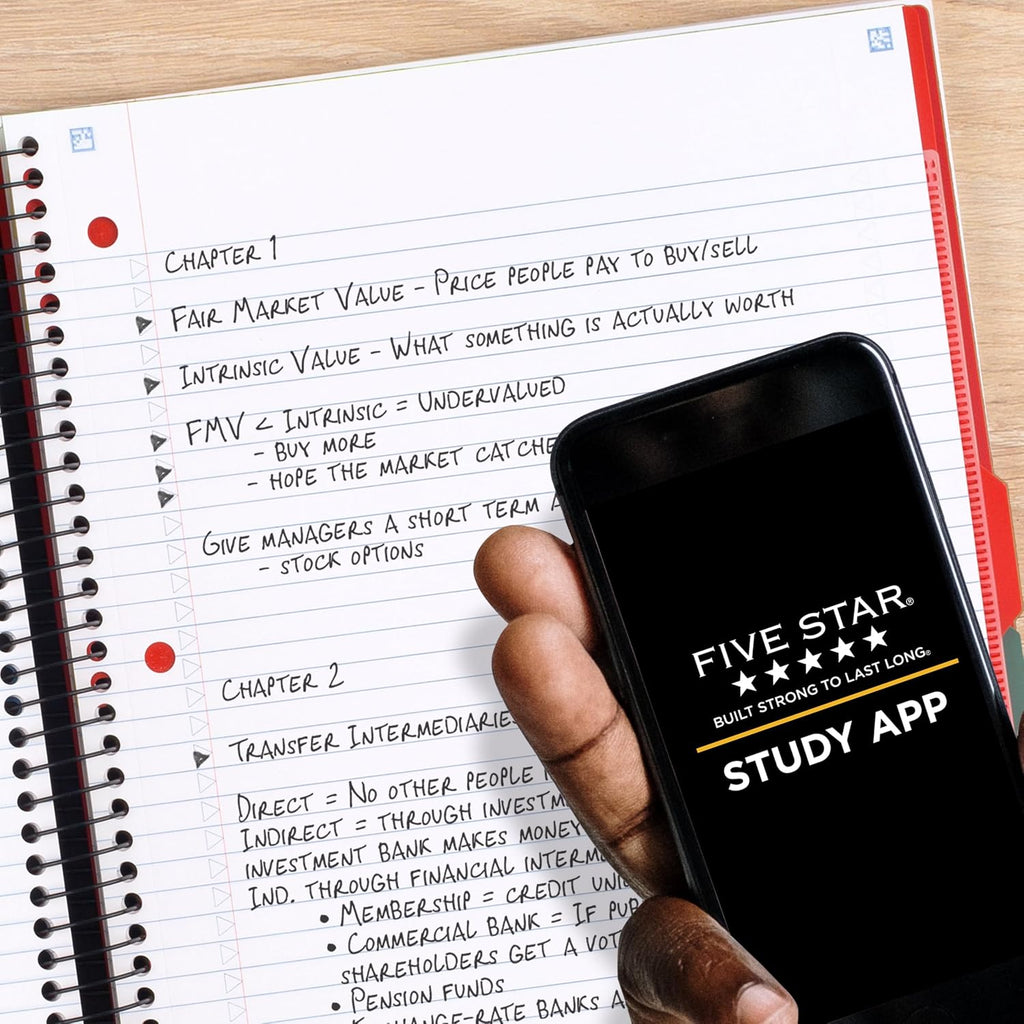 CHAPTER 1
FAIR MARKET VALUE - PRICE PEOPLE PAY TO BUY/SELL
INTRINSIC VALUE - WHAT SOMETHING IS ACTUALLY WORTH
FMV < INTRINSIC = UNDERVALUED
- BUY MORE
- HOPE THE MARKET CATCHE
GIVE MANAGERS A SHORT TERM
- STOCK OPTIONS
CHAPTER 2
TRANSFER INTERMEDIARIES
DIRECT = NO OTHER PEOPLE
INDIRECT = THROUGH INVESTM
INVESTMENT BANK MAKES MONEY
IND. THROUGH FINANCIAL INTERM
• MEMBERSHIP = CREDIT UNI
• COMMERCIAL BANK = IF PUB
SHAREHOLDERS GET A VOT
• PENSION FUNDS
-RATE BANKS A
FIVE STAR®
★★★★★
BUILT STRONG TO LAST LONG®
STUDY APP